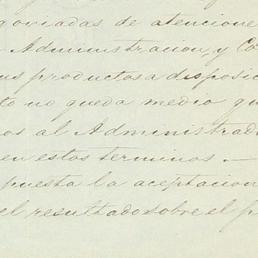 goviadas de atencione
- Administracion, y Co
us productos a disposic
to no queda medio qu
os al Administrad
en estos terminos. -
puesta la aceptacion
el resultado sobre el p